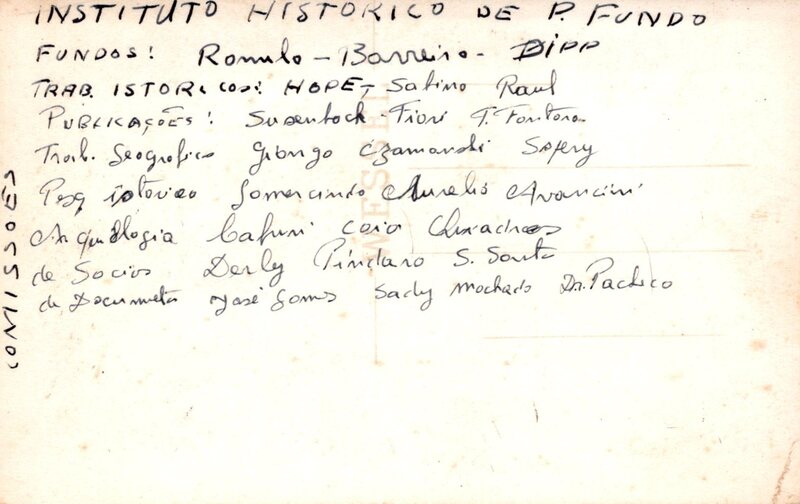 INSTITUTO HISTORICO DE P. FUNDO
FUNDOS: Romulo - Barreiro - DIPP
TRAB. ISTORICOS: HOPE, Sabino Raul
PUBLICAÇÕES: Fiori T. Fontoura
Trab. Geografico Giongo Czamanski
Pesq istorica Gomercindo Aurelio Avancini
Arquelogia Cafruni Caio
de Socios Derly Pindaro S.
de Documetos José Gomes Sady Machado Dr. Pacheco
COMISSOES
WESSEL